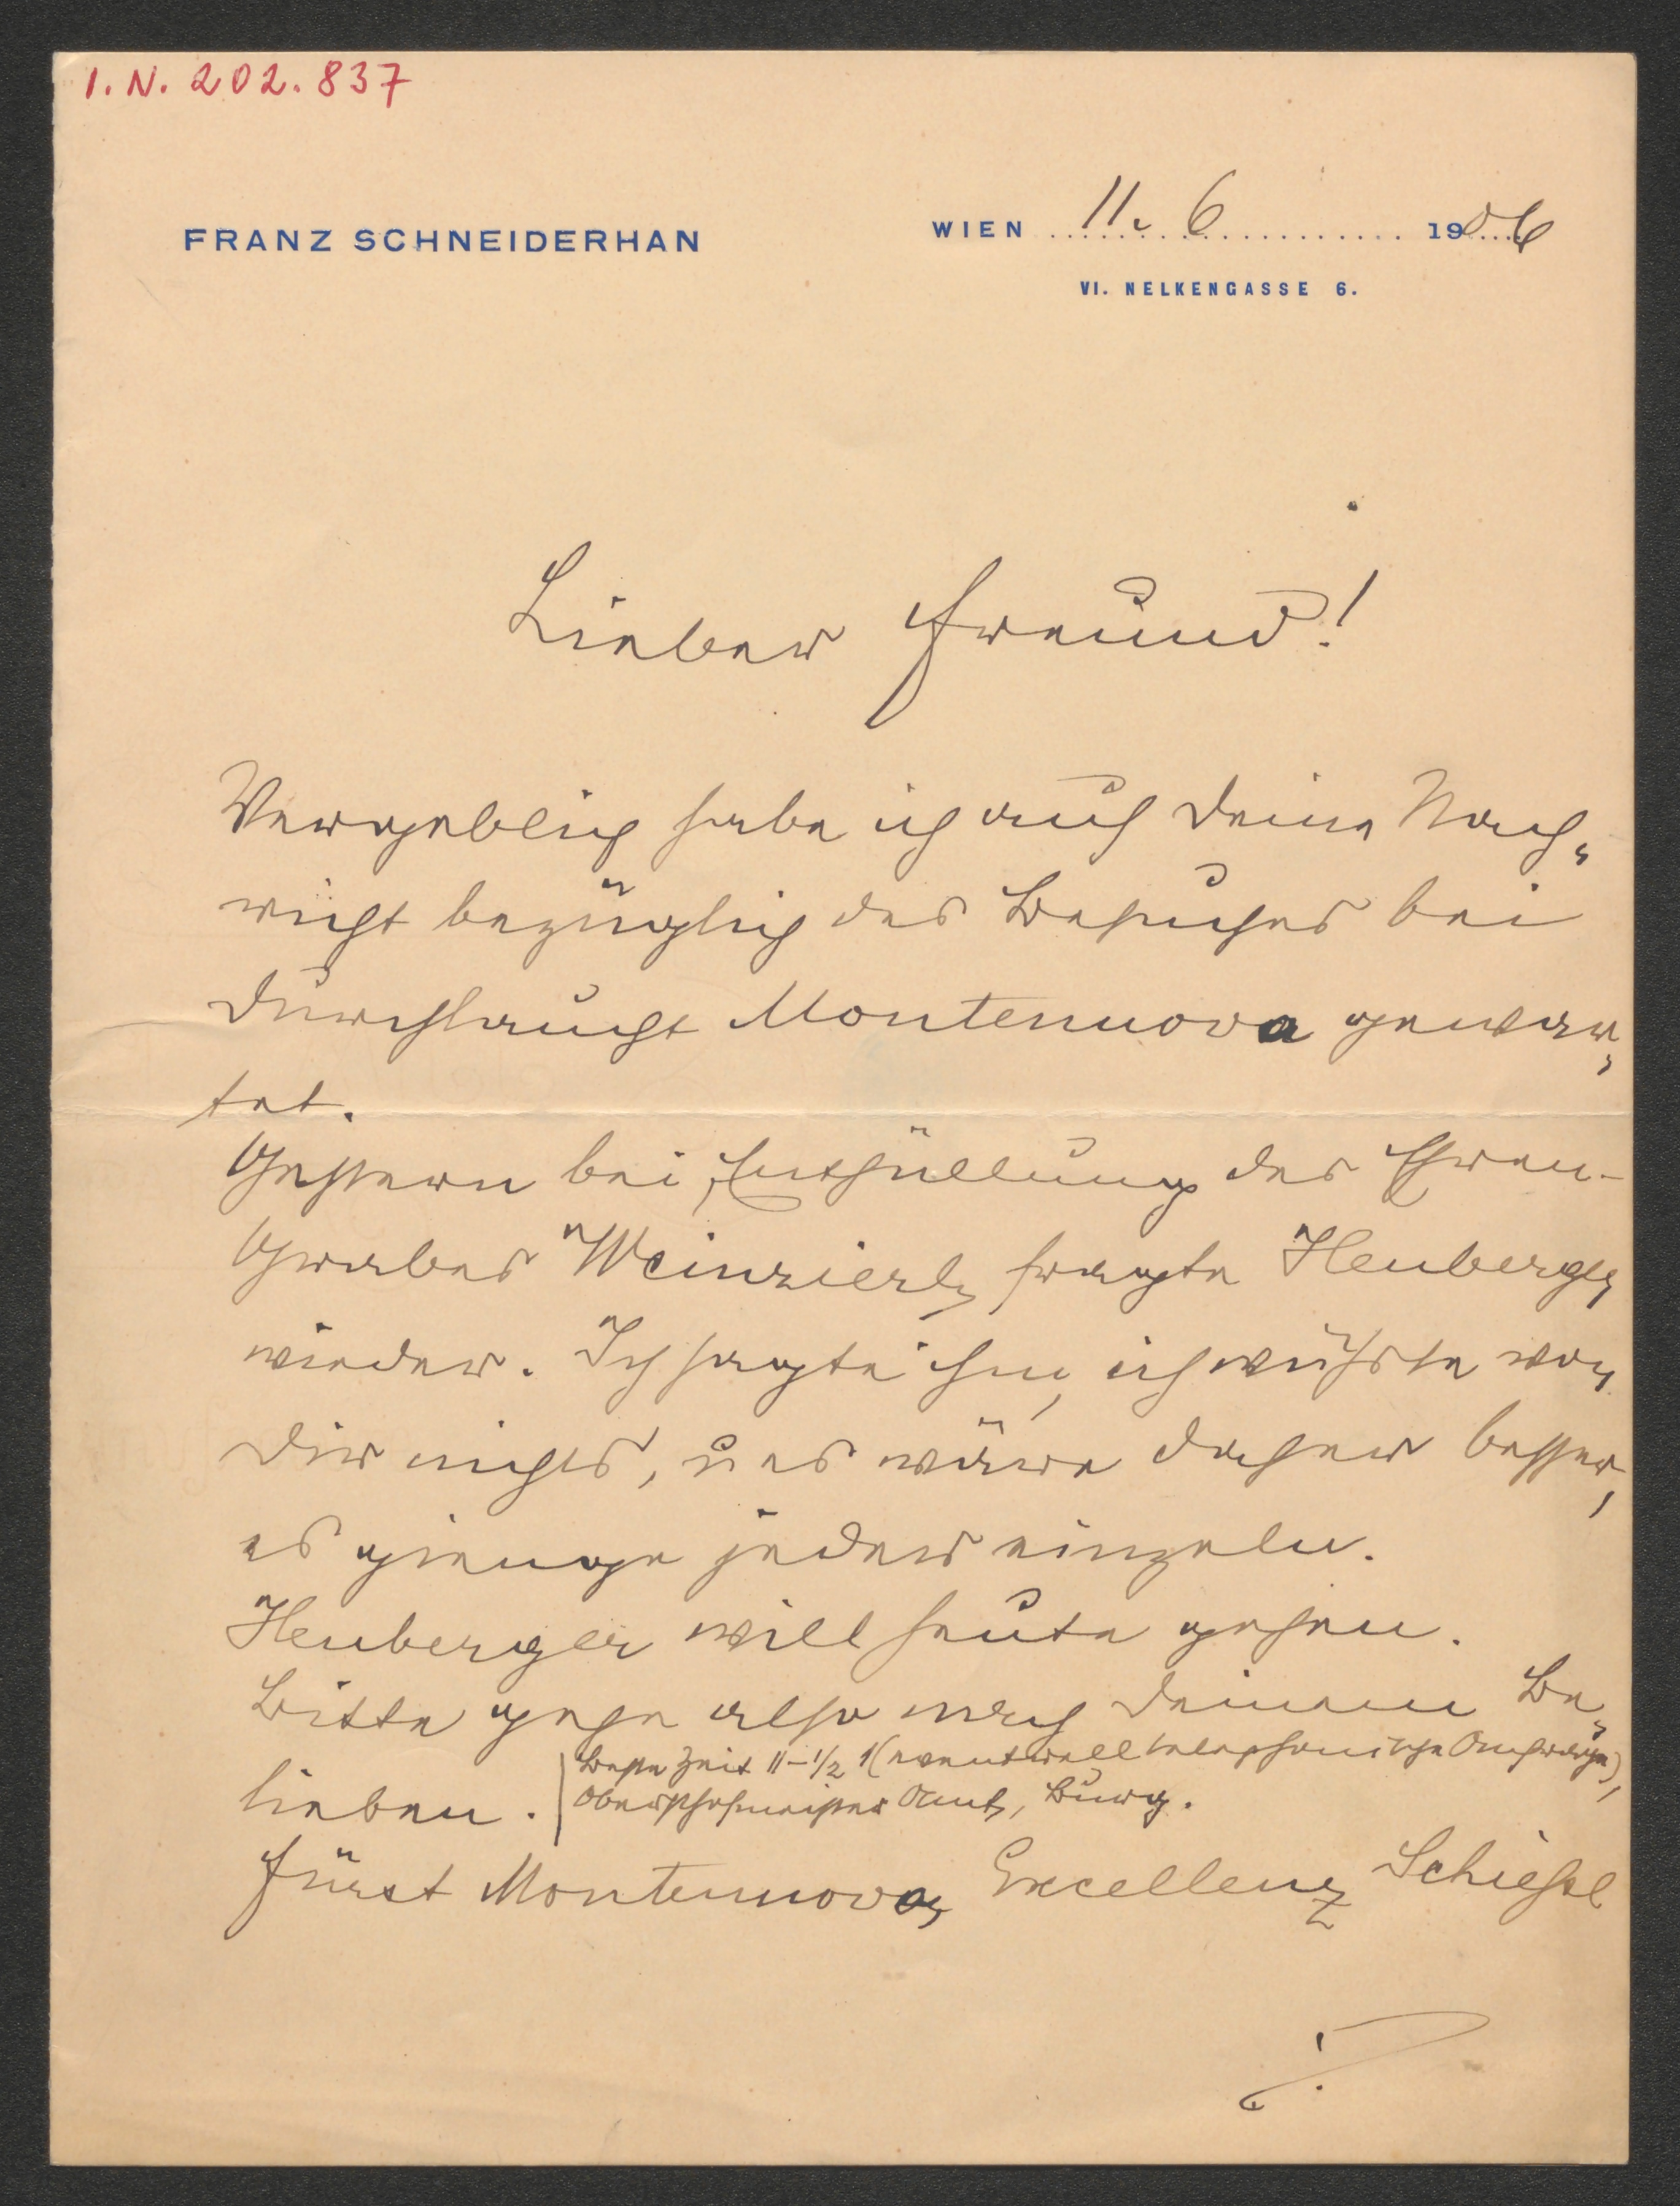 I. N. 202.837
FRANZ SCHNEIDERHAN
WIEN 11. 6 1906
VI. NELKENGASSE 6.
Lieber Freund!
Vergeblich habe ich auf Deine Nach-
richt bezüglich des Besuches bei
Durchlaucht Montenuovo gewar-
tet.
Gestern bei Enthüllung des Ehren-
Grabes Weinzierl, fragte Heuberger
wieder. Ich sagte ihm, ich wüßte von
Dir nichts, u es wäre daher besser,
es gienge jeder einzeln.
Heuberger will heute gehen.
Bitte gehe also nach Deinem Be-
lieben.
Beste Zeit 11–1/2 1 (eventuell telephonische Anfrage),
Obersthofmeister Amt, Burg.
Fürst Montenuovo, Excellenz Schießl